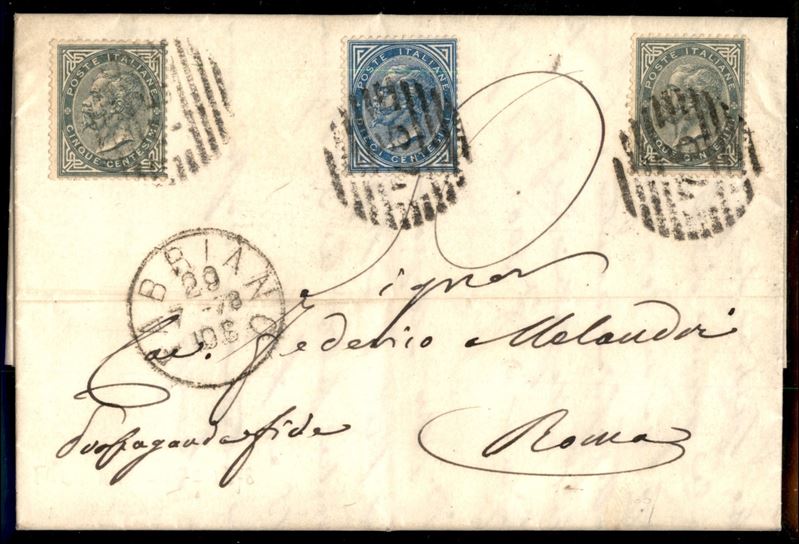 POSTE ITALIANE
CINQUE CENTESIMI
POSTE ITALIANE
DIECI CENTESIMI
POSTE ITALIANE
CINQUE CENTESIMI
FABRIANO
29
78
Signor
Cav. Federico Melandri
Propaganda fide
Roma